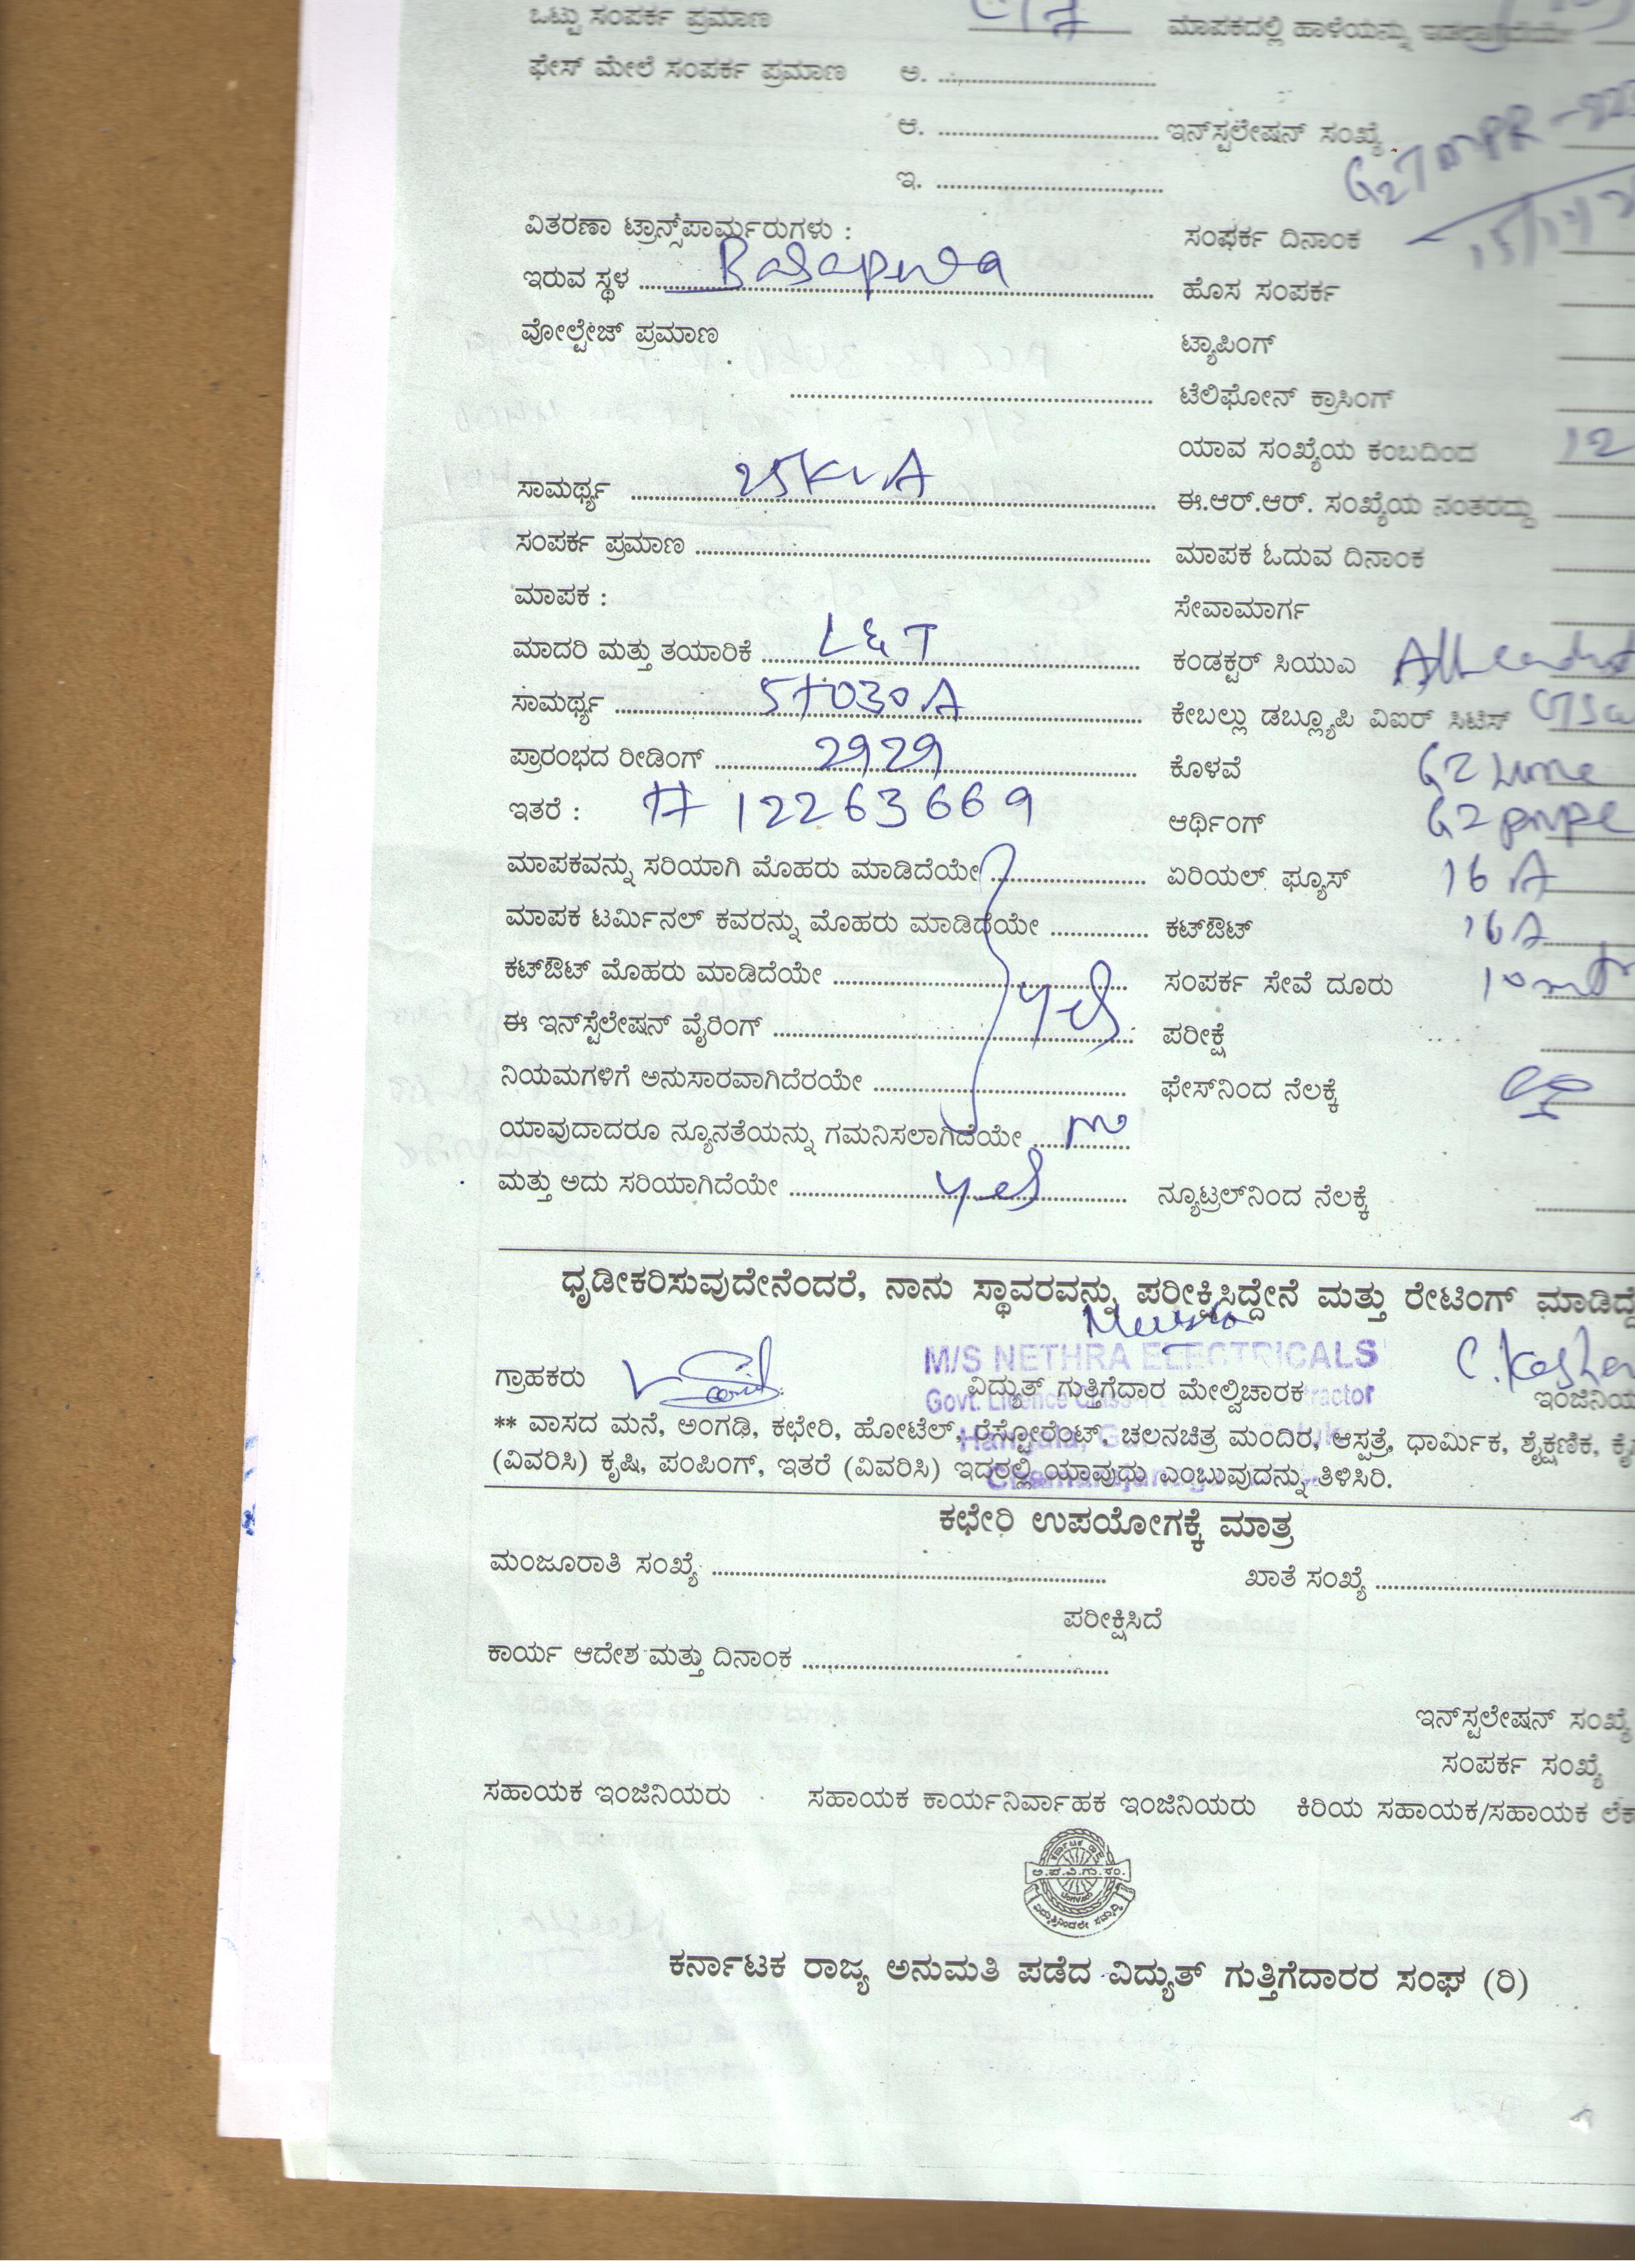 ಒಟ್ಟು ಸಂಪರ್ಕ ಪ್ರಮಾಣ ಮಾಪಕದಲ್ಲಿ ಹಾಳೆಯನ್ನು ಇಡಲಾಗಿದೆಯೇ
ಫೇಸ್ ಮೇಲೆ ಸಂಪರ್ಕ ಪ್ರಮಾಣ ಅ. ....................
ಆ. .................... ಇನ್‌ಸ್ಟಲೇಷನ್ ಸಂಖ್ಯೆ
ಇ. ....................
ವಿತರಣಾ ಟ್ರಾನ್ಸ್‌ಪಾರ್ಮರುಗಳು : ಸಂಪರ್ಕ ದಿನಾಂಕ
ಇರುವ ಸ್ಥಳ Basapura ಹೊಸ ಸಂಪರ್ಕ
ವೋಲ್ಟೇಜ್ ಪ್ರಮಾಣ ಟ್ಯಾಪಿಂಗ್
.................... ಟೆಲಿಫೋನ್ ಕ್ರಾಸಿಂಗ್
ಯಾವ ಸಂಖ್ಯೆಯ ಕಂಬದಿಂದ 12
ಸಾಮರ್ಥ್ಯ 25KVA ಈ.ಆರ್.ಆರ್. ಸಂಖ್ಯೆಯ ನಂತರದ್ದು
ಸಂಪರ್ಕ ಪ್ರಮಾಣ .................... ಮಾಪಕ ಓದುವ ದಿನಾಂಕ
ಮಾಪಕ : ಸೇವಾಮಾರ್ಗ
ಮಾದರಿ ಮತ್ತು ತಯಾರಿಕೆ L&T ಕಂಡಕ್ಟರ್ ಸಿಯುಎ
ಸಾಮರ್ಥ್ಯ 5to30A ಕೇಬಲ್ಲು ಡಬ್ಲ್ಯೂಪಿ ವಿಐರ್ ಸಿಟಿಸ್
ಪ್ರಾರಂಭದ ರೀಡಿಂಗ್ 2929 ಕೊಳವೆ
ಇತರೆ : # 12263669 ಆರ್ಥಿಂಗ್
ಮಾಪಕವನ್ನು ಸರಿಯಾಗಿ ಮೊಹರು ಮಾಡಿದೆಯೇ .................... ಏರಿಯಲ್ ಫ್ಯೂಸ್ 16 A
ಮಾಪಕ ಟರ್ಮಿನಲ್ ಕವರನ್ನು ಮೊಹರು ಮಾಡಿದೆಯೇ .................... ಕಟ್‌ಔಟ್ 16A
ಕಟ್‌ಔಟ್ ಮೊಹರು ಮಾಡಿದೆಯೇ .................... ಸಂಪರ್ಕ ಸೇವೆ ದೂರು
ಈ ಇನ್‌ಸ್ಟೆಲೇಷನ್ ವೈರಿಂಗ್ yes ಪರೀಕ್ಷೆ
ನಿಯಮಗಳಿಗೆ ಅನುಸಾರವಾಗಿದೆರಯೇ .................... ಫೇಸ್‌ನಿಂದ ನೆಲಕ್ಕೆ
ಯಾವುದಾದರೂ ನ್ಯೂನತೆಯನ್ನು ಗಮನಿಸಲಾಗಿದೆಯೇ
ಮತ್ತು ಅದು ಸರಿಯಾಗಿದೆಯೇ yes ನ್ಯೂಟ್ರಲ್‌ನಿಂದ ನೆಲಕ್ಕೆ
ಧೃಡೀಕರಿಸುವುದೇನೆಂದರೆ, ನಾನು ಸ್ಥಾವರವನ್ನು ಪರೀಕ್ಷಿಸಿದ್ದೇನೆ ಮತ್ತು ರೇಟಿಂಗ್
M/S NETHRA ELECTRICALS
ಗ್ರಾಹಕರು ವಿದ್ಯುತ್ ಗುತ್ತಿಗೆದಾರ ಮೇಲ್ವಿಚಾರಕ
** ವಾಸದ ಮನೆ, ಅಂಗಡಿ, ಕಛೇರಿ, ಹೋಟೆಲ್, ರೆಸ್ಟೋರೆಂಟ್, ಚಲನಚಿತ್ರ ಮಂದಿರ, ಆಸ್ಪತ್ರೆ, ಧಾರ್ಮಿಕ, ಶೈಕ್ಷಣಿಕ,
(ವಿವರಿಸಿ) ಕೃಷಿ, ಪಂಪಿಂಗ್, ಇತರೆ (ವಿವರಿಸಿ) ಇದರಲ್ಲಿ ಯಾವುಧು ಎಂಬುವುದನ್ನು ತಿಳಿಸಿರಿ.
ಕಛೇರಿ ಉಪಯೋಗಕ್ಕೆ ಮಾತ್ರ
ಮಂಜೂರಾತಿ ಸಂಖ್ಯೆ .................... ಖಾತೆ ಸಂಖ್ಯೆ ....................
ಪರೀಕ್ಷಿಸಿದೆ
ಕಾರ್ಯ ಆದೇಶ ಮತ್ತು ದಿನಾಂಕ ....................
ಇನ್‌ಸ್ಟಲೇಷನ್ ಸಂಖ್ಯೆ
ಸಂಪರ್ಕ ಸಂಖ್ಯೆ
ಸಹಾಯಕ ಇಂಜಿನಿಯರು ಸಹಾಯಕ ಕಾರ್ಯನಿರ್ವಾಹಕ ಇಂಜಿನಿಯರು ಕಿರಿಯ ಸಹಾಯಕ/ಸಹಾಯಕ
ಕರ್ನಾಟಕ ರಾಜ್ಯ ಅನುಮತಿ ಪಡೆದ ವಿದ್ಯುತ್ ಗುತ್ತಿಗೆದಾರರ ಸಂಘ (ರಿ)